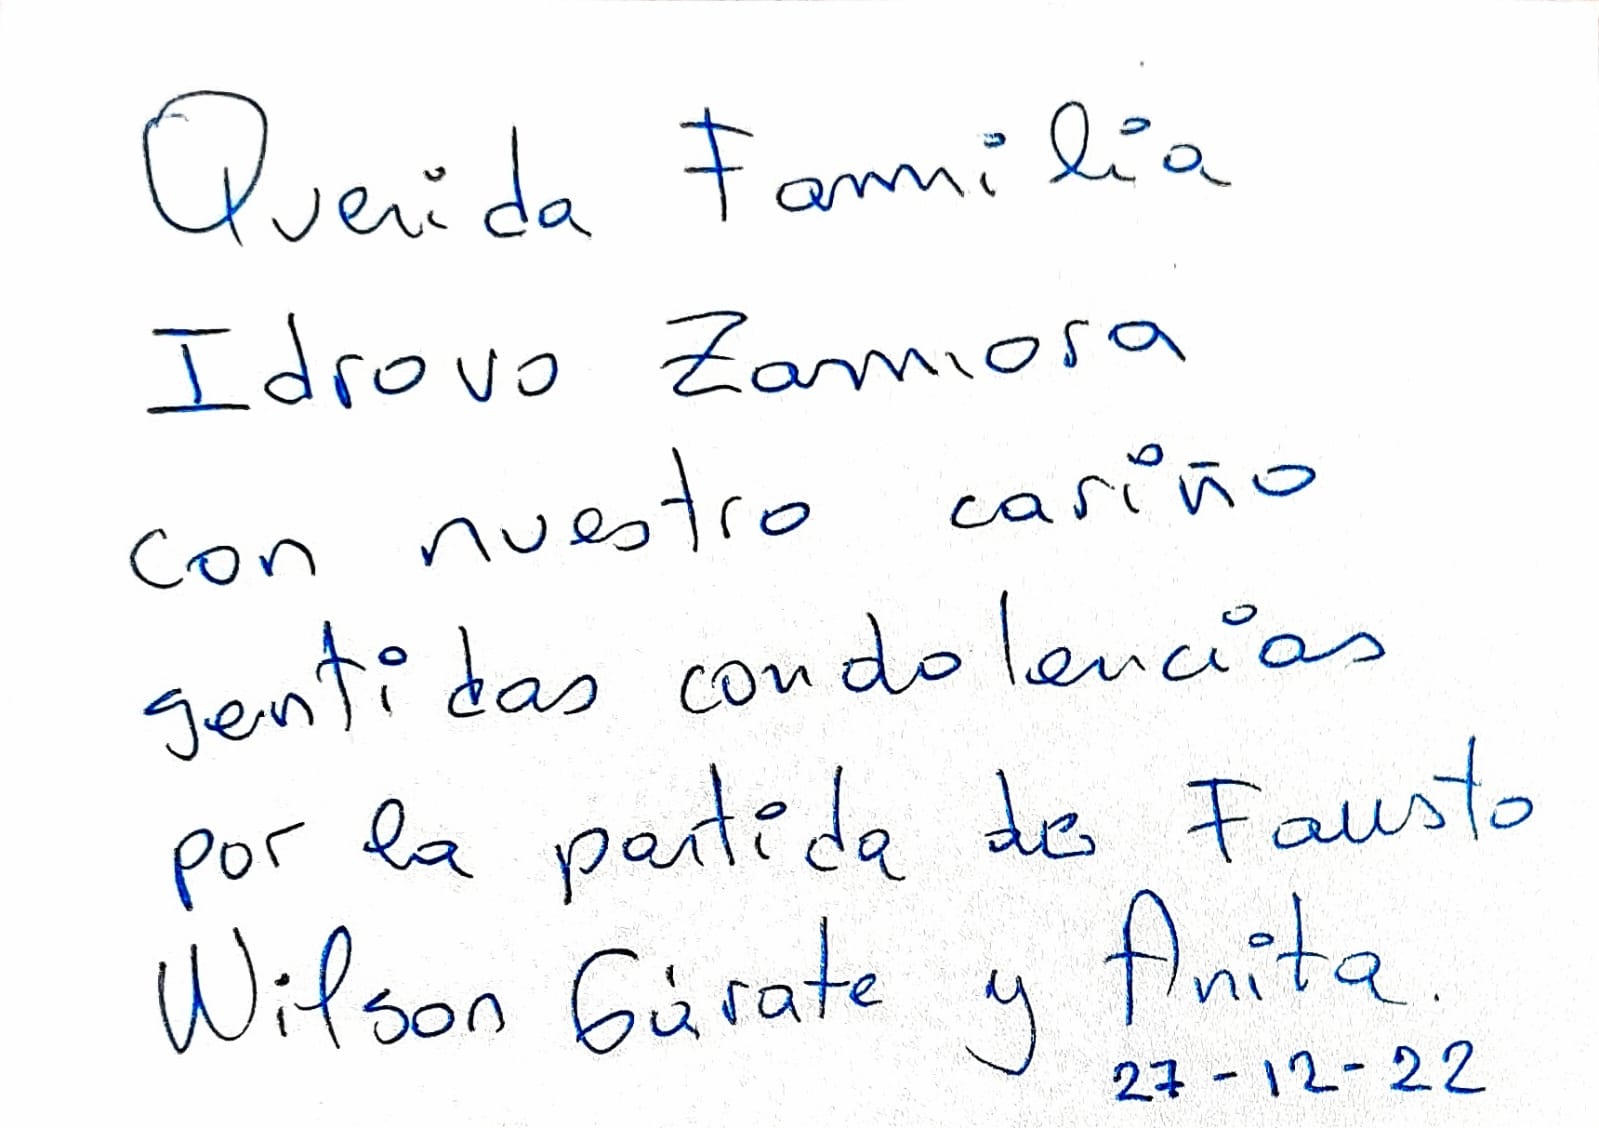 Querida Familia
Idrovo Zamora
con nuestro cariño
sentidas condolencias
por la partida de Fausto
Wilson Gárate y Anita.
27-12-22